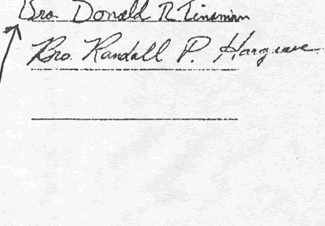 Bro. Donald R Tinsman
Bro. Randall P.